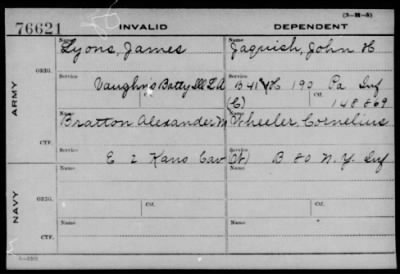 (3-M-8)
76621 INVALID DEPENDENT
Name Name
Lyons, James Jaquish, John H
ORIG. Service Service
Vaughn's Batty Ill L A B 41 & H 193 Pa Inf
Ctf. (C) Ctf. 148869
ARMY
Name Name
Bratton Alexander M Wheeler Cornelius
CTF. Service Service
E 2 Kans Cav (Ct) B 80 N.Y. Inf
Name Name
ORIG. Service Service
Ctf. Ctf.
NAVY
Name Name
CTF. Service Service